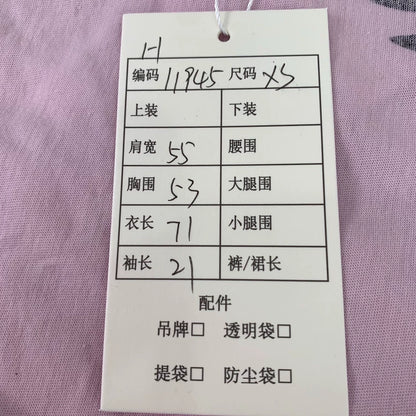 1-1
编码 11945 尺码 XS
上装 下装
肩宽 55 腰围
胸围 53 大腿围
衣长 71 小腿围
袖长 21 裤/裙长
配件
吊牌□ 透明袋□
提袋□ 防尘袋□